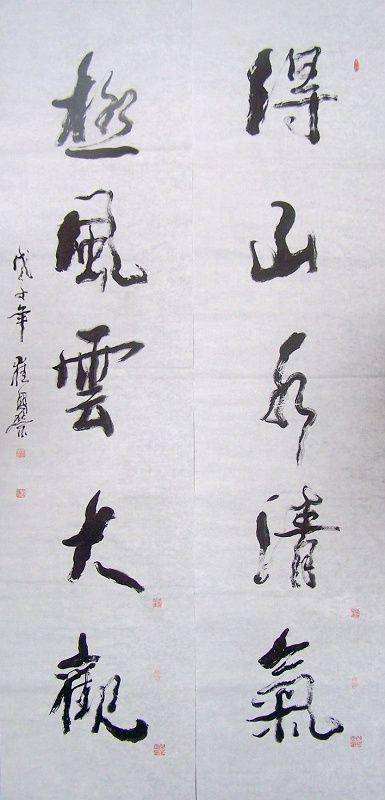 得山水清氣
極風雲大觀
戊子年